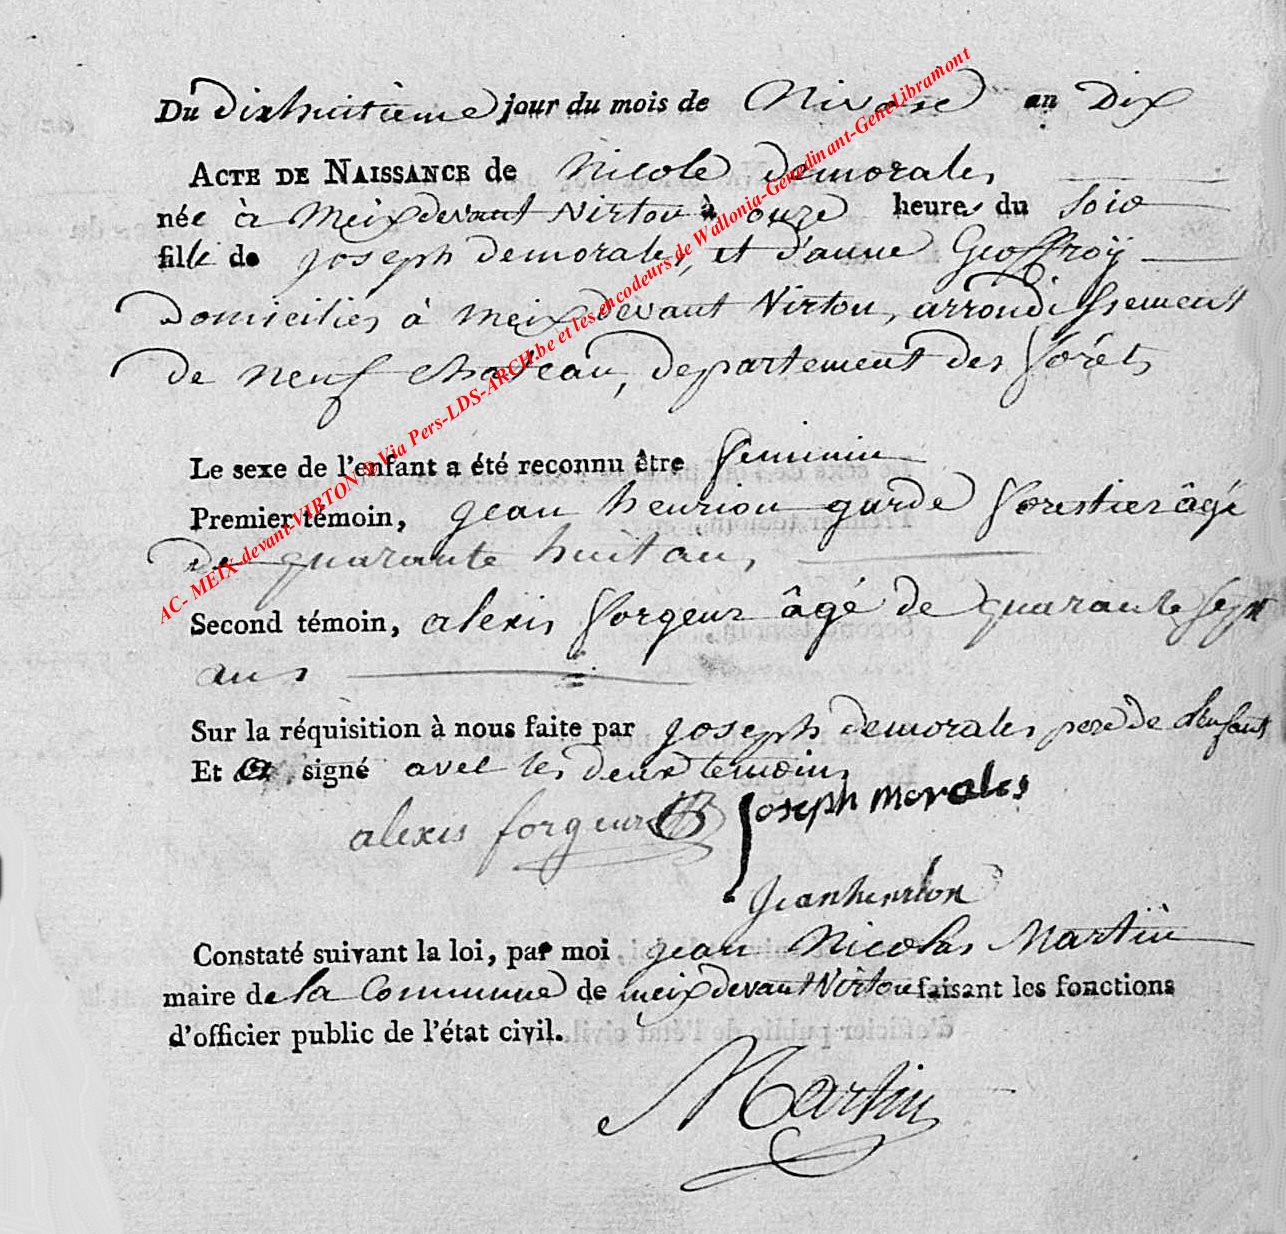 Du dixhuitieme jour du mois de Nivose an Dix
ACTE DE NAISSANCE de Nicole demorales
née à Meix devant Virton à onze heures du soir
fille de joseph demorales, et d'anne Geoffroÿ
Domicilies à meix devant Virton, arrondissement
de neuf chateau, departement des forêts
Le sexe de l'enfant a été reconnu être feminin
Premier témoin, jean henrion garde forestier âgé
de quarante huit ans,
Second témoin, alexis forgeur âgé de quarante sept
ans
Sur la réquisition à nous faite par joseph demorales pere de l'enfant
Et a signé avec les deux temoins
alexis forgeur joseph morales
jean henrion
Constaté suivant la loi, par moi jean Nicolas Martin
maire de la Commune de meix devant Virton faisant les fonctions
d'officier public de l'état civil.
Martin
AC- MEIX-devant-VIRTON & Via Pers-LDS-ARCH.be et les encodeurs de Wallonia-Genedinant-GeneLibramont